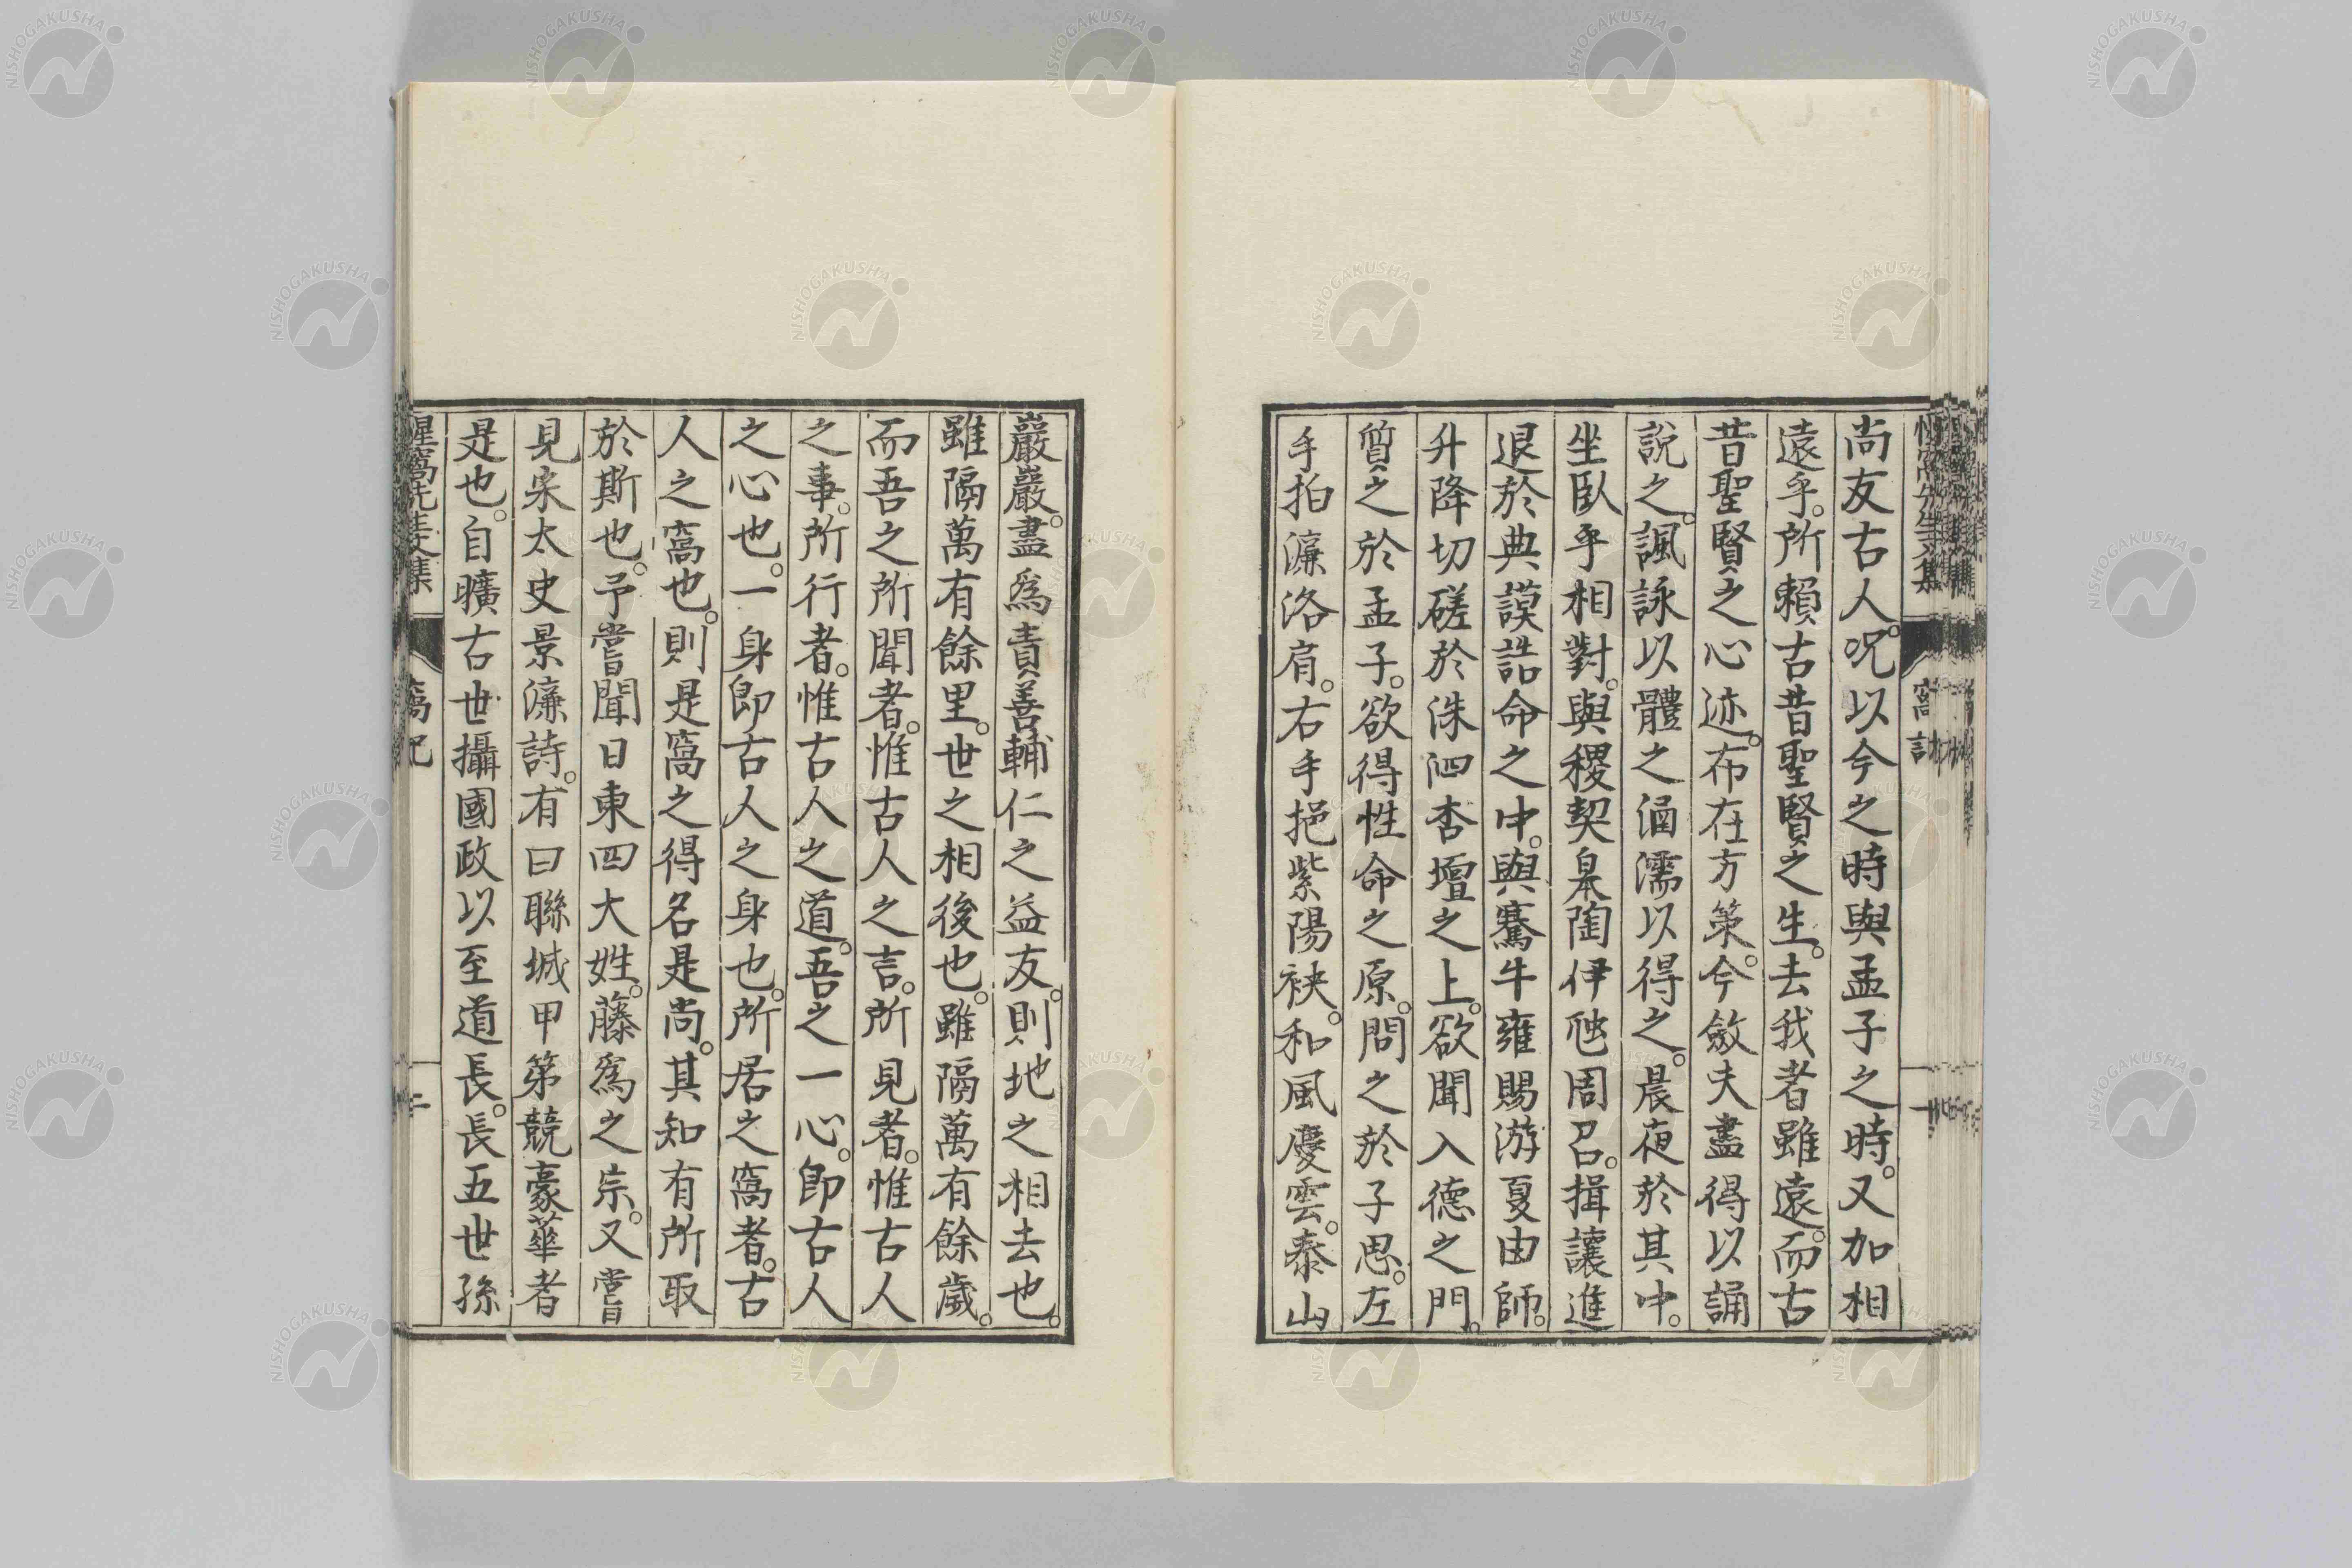 尚友古人。況以今之時與孟子之時。又加相
遠乎。所賴古昔聖賢之生。去我者雖遠。而古
昔聖賢之心迹。布在方策。今斂夫盡得以誦
說之。諷詠以體之涵濡以得之。晨夜於其中。
坐臥乎相對。與稷契皐陶伊虺周召。揖讓進
退於典謨誥命之中。與騫牛雍賜游夏由師。
升降切磋於洙泗杏壇之上。欲聞入德之門。
質之於孟子。欲得性命之原。問之於子思。左
手拍濂洛肩。右手挹紫陽袂。和風慶雲。泰山
巖巖。盡爲責善輔仁之益友。則地之相去也。
雖隔萬有餘里。世之相後也。雖隔萬有餘歲。
而吾之所聞者。惟古人之言。所見者。惟古人
之事。所行者。惟古人之道。吾之一心。卽古人
之心也。一身卽古人之身也。所居之窩者。古
人之窩也。則是窩之得名是尚。其知有所取
於斯也。予嘗聞日東四大姓。藤爲之宗。又嘗
見宋太史景濂詩。有曰聯城甲第競豪華者
是也。自曠古世攝國政以至道長。長五世孫
惺窩先生文集
窩記
二
NISHOGAKUSHA